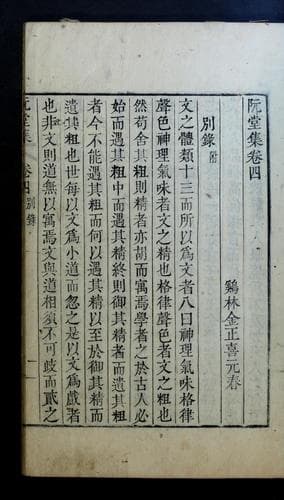 阮堂集卷四
鷄林金正喜元春
別錄附
文之體類十三而所以爲文者八曰神理氣味格律
聲色神理氣味者文之精也格律聲色者文之粗也
然苟舍其粗則精者亦胡而寓焉學者之於古人必
始而遇其粗中而遇其精終則御其精者而遺其粗
者今不能遇其粗而何以遇其精以至於御其精而
遺其粗也世每以文爲小道而忽之是以文爲戲者
也非文則道無以寓焉文與道相須不可歧而貳之
阮堂集
卷四
別錄
一